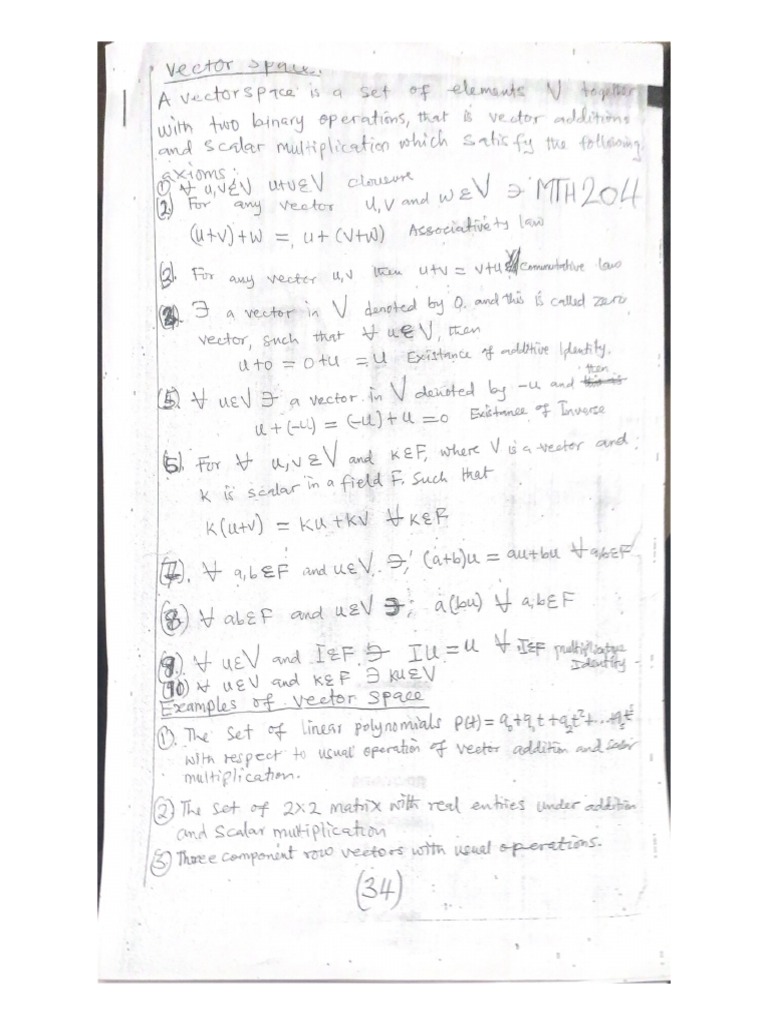 Vector space.
A vectorspace is a set of elements V together
with two binary operations, that is vector additions
and scalar multiplication which satisfy the following
axioms:
① ∀ u,vƐV u+vƐV clousure
(2) For any vector u,v and wƐV ∋ MTH204
(u+v)+w = u+(v+w) Associativety law
(3). For any vector u,v then u+v = v+u commutative law
(4). ∃ a vector in V denoted by 0. and this is called zero
vector, such that ∀ uƐV, then
u+0 = 0+u = u Existance of additive Identity.
(5). ∀ uƐV ∋ a vector in V denoted by -u and then
u+(-u) = (-u)+u = 0 Existance of Inverse
(6). For ∀ u,vƐV and KƐF, where V is a vector and
K is scalar in a field F. Such that
K(u+v) = Ku+Kv ∀ KƐF
(7). ∀ a,bƐF and uƐV. ∋; (a+b)u = au+bu ∀ a,bƐF
(8) ∀ abƐF and uƐV ∋; a(bu) ∀ a,bƐF
(9). ∀ uƐV and IƐF ∋ Iu = u ∀ IƐF multiplicative
Identity
(10) ∀ uƐV and KƐF ∋ KuƐV
Examples of vector space
①. The set of linear polynomials P(t) = a₀+a₁t+a₂t²+...
with respect to usual operation of vector addition and scalar
multiplication.
② The set of 2x2 matrix with real entries under addition
and scalar multiplication
③ Three component row vectors with usual operations.
(34)